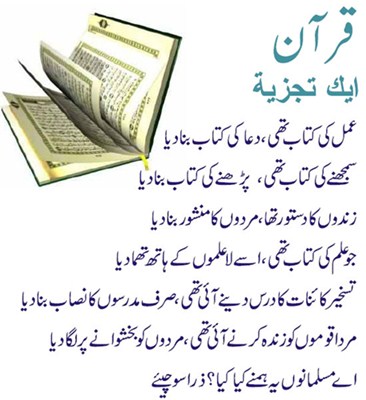 قرآن
ایك تجزیة
عمل کی کتاب تھی، دعا کی کتاب بنا دیا
سمجھنے کی کتاب تھی، پڑھنے کی کتاب بنا دیا
زندوں کا دستور تھا، مردوں کا منشور بنا دیا
جو علم کی کتاب تھی، اسے لا علموں کے ہاتھ تھما دیا
تسخیر کائنات کا درس دینے آئی تھی، صرف مدرسوں کا نصاب بنا دیا
مردا قوموں کو زندہ کرنے آئی تھی، مردوں کو بخشوانے پر لگا دیا
اے مسلمانوں یہ ہمنے کیا کیا؟ ذرا سوچیئے